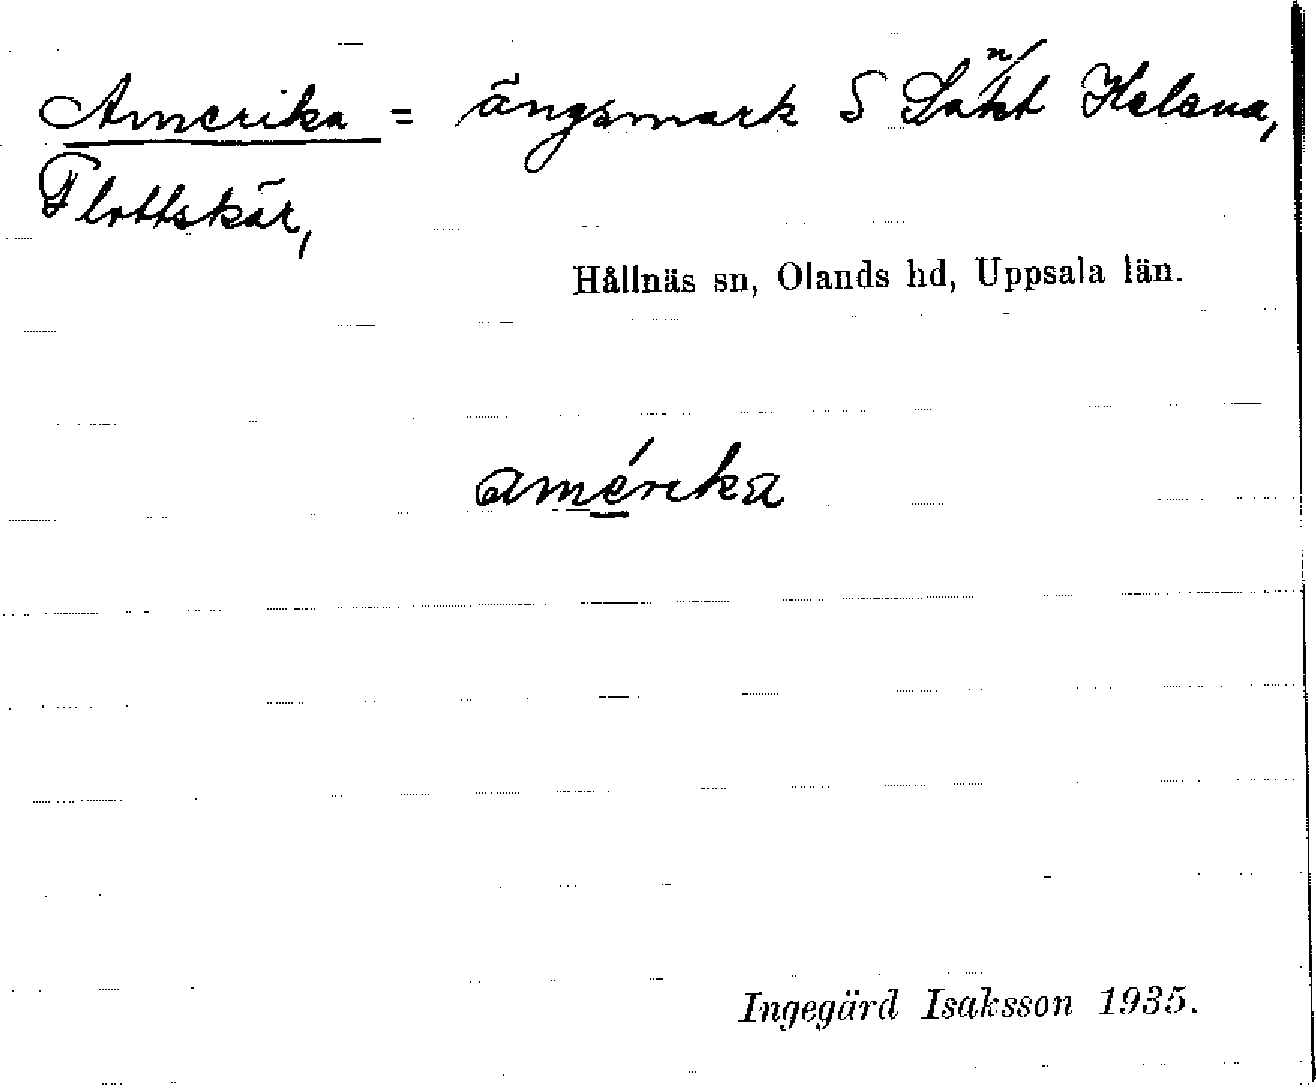 Amerika = ängsmark S Sankt Helena,
Flottskär,
Hållnäs sn, Olands hd, Uppsala län.
amérika
Ingegärd Isaksson 1935.